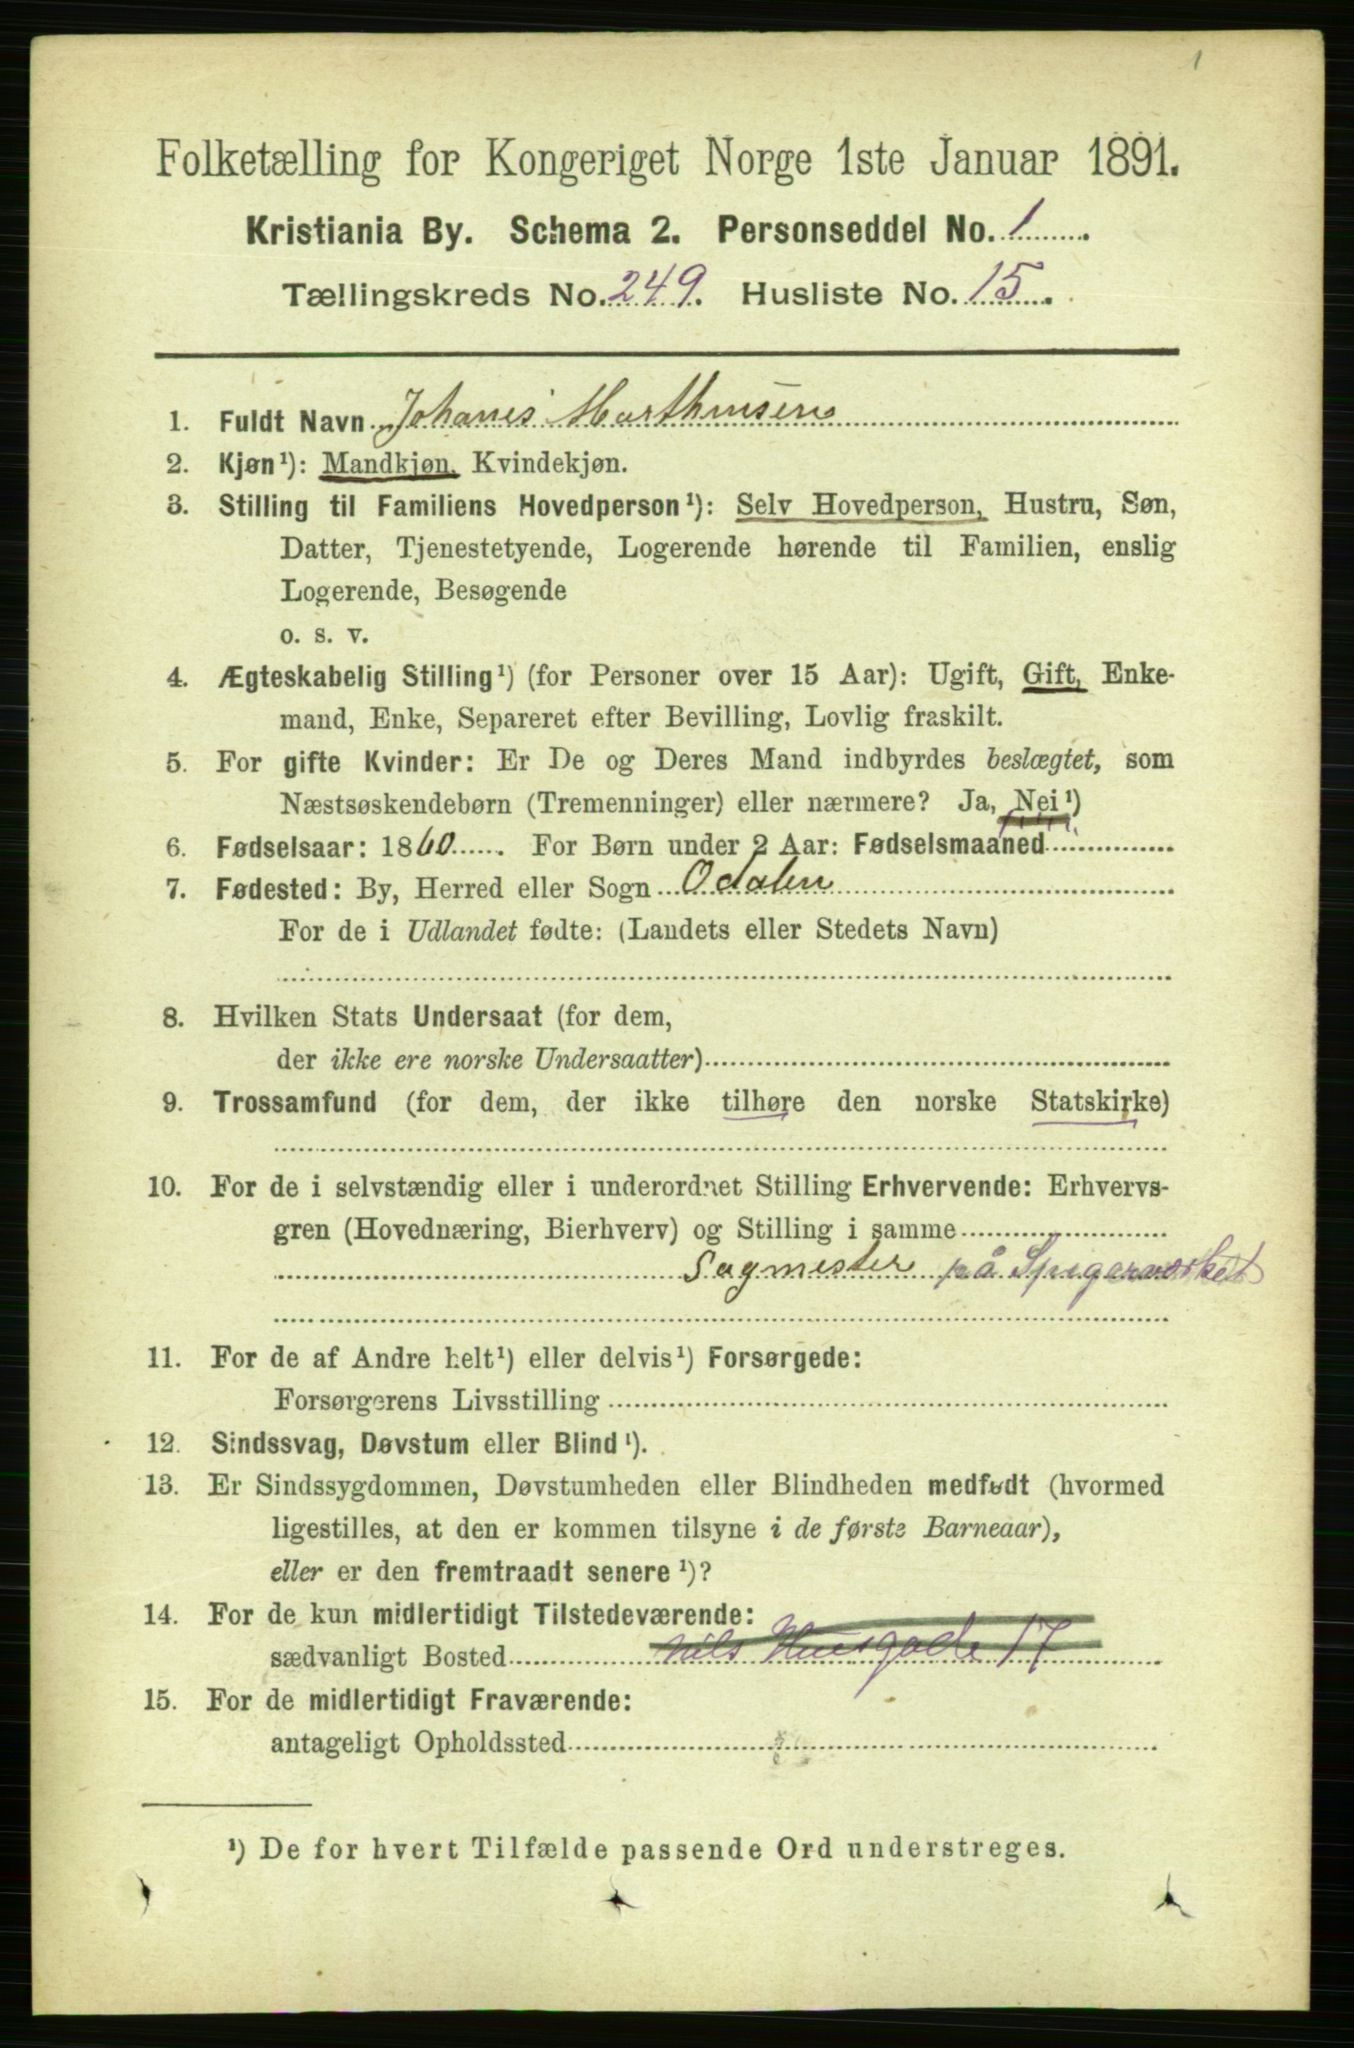 1
Folketælling for Kongeriget Norge 1ste Januar 1891.
Kristiania By. Schema 2. Personseddel No. 1.
Tællingskreds No. 249. Husliste No. 15.
1. Fuldt Navn Johanes Marthinsen
2. Kjøn¹): Mandkjøn, Kvindekjøn.
3. Stilling til Familiens Hovedperson¹): Selv Hovedperson, Hustru, Søn,
Datter, Tjenestetyende, Logerende hørende til Familien, enslig
Logerende, Besøgende
o. s. v.
4. Ægteskabelig Stilling¹) (for Personer over 15 Aar): Ugift, Gift, Enke-
mand, Enke, Separeret efter Bevilling, Lovlig fraskilt.
5. For gifte Kvinder: Er De og Deres Mand indbyrdes beslægtet, som
Næstsøskendebørn (Tremenninger) eller nærmere? Ja, Nei¹)
6. Fødselsaar: 1860. For Børn under 2 Aar: Fødselsmaaned
7. Fødested: By, Herred eller Sogn Odalen
For de i Udlandet fødte: (Landets eller Stedets Navn)
8. Hvilken Stats Undersaat (for dem,
der ikke ere norske Undersaatter)
9. Trossamfund (for dem, der ikke tilhøre den norske Statskirke)
10. For de i selvstændig eller i underordnet Stilling Erhvervende: Erhvervs-
gren (Hovednæring, Bierhverv) og Stilling i samme
Sagmester på Spigerværket
11. For de af Andre helt¹) eller delvis¹) Forsørgede:
Forsørgerens Livsstilling
12. Sindssvag, Døvstum eller Blind¹).
13. Er Sindssygdommen, Døvstumheden eller Blindheden medfødt (hvormed
ligestilles, at den er kommen tilsyne i de første Barneaar),
eller er den fremtraadt senere¹)?
14. For de kun midlertidigt Tilstedeværende:
sædvanligt Bosted Nils Huusgade 17
15. For de midlertidigt Fraværende:
antageligt Opholdssted
¹) De for hvert Tilfælde passende Ord understreges.